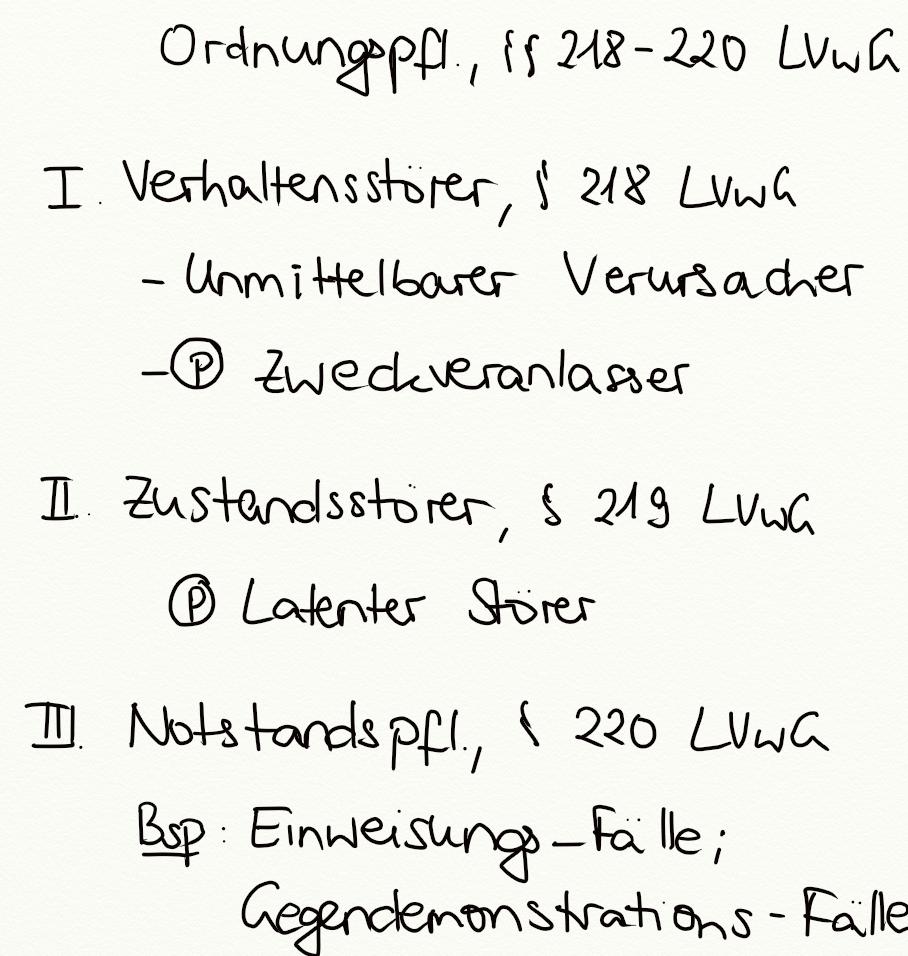 Ordnungspfl., §§ 218-220 LVwG
I. Verhaltensstörer, § 218 LVwG
- Unmittelbarer Verursacher
- Ⓟ Zweckveranlasser
II. Zustandsstörer, § 219 LVwG
Ⓟ Latenter Störer
III. Notstandspfl., § 220 LVwG
Bsp: Einweisungs-Fälle;
Gegendemonstrations-Fälle